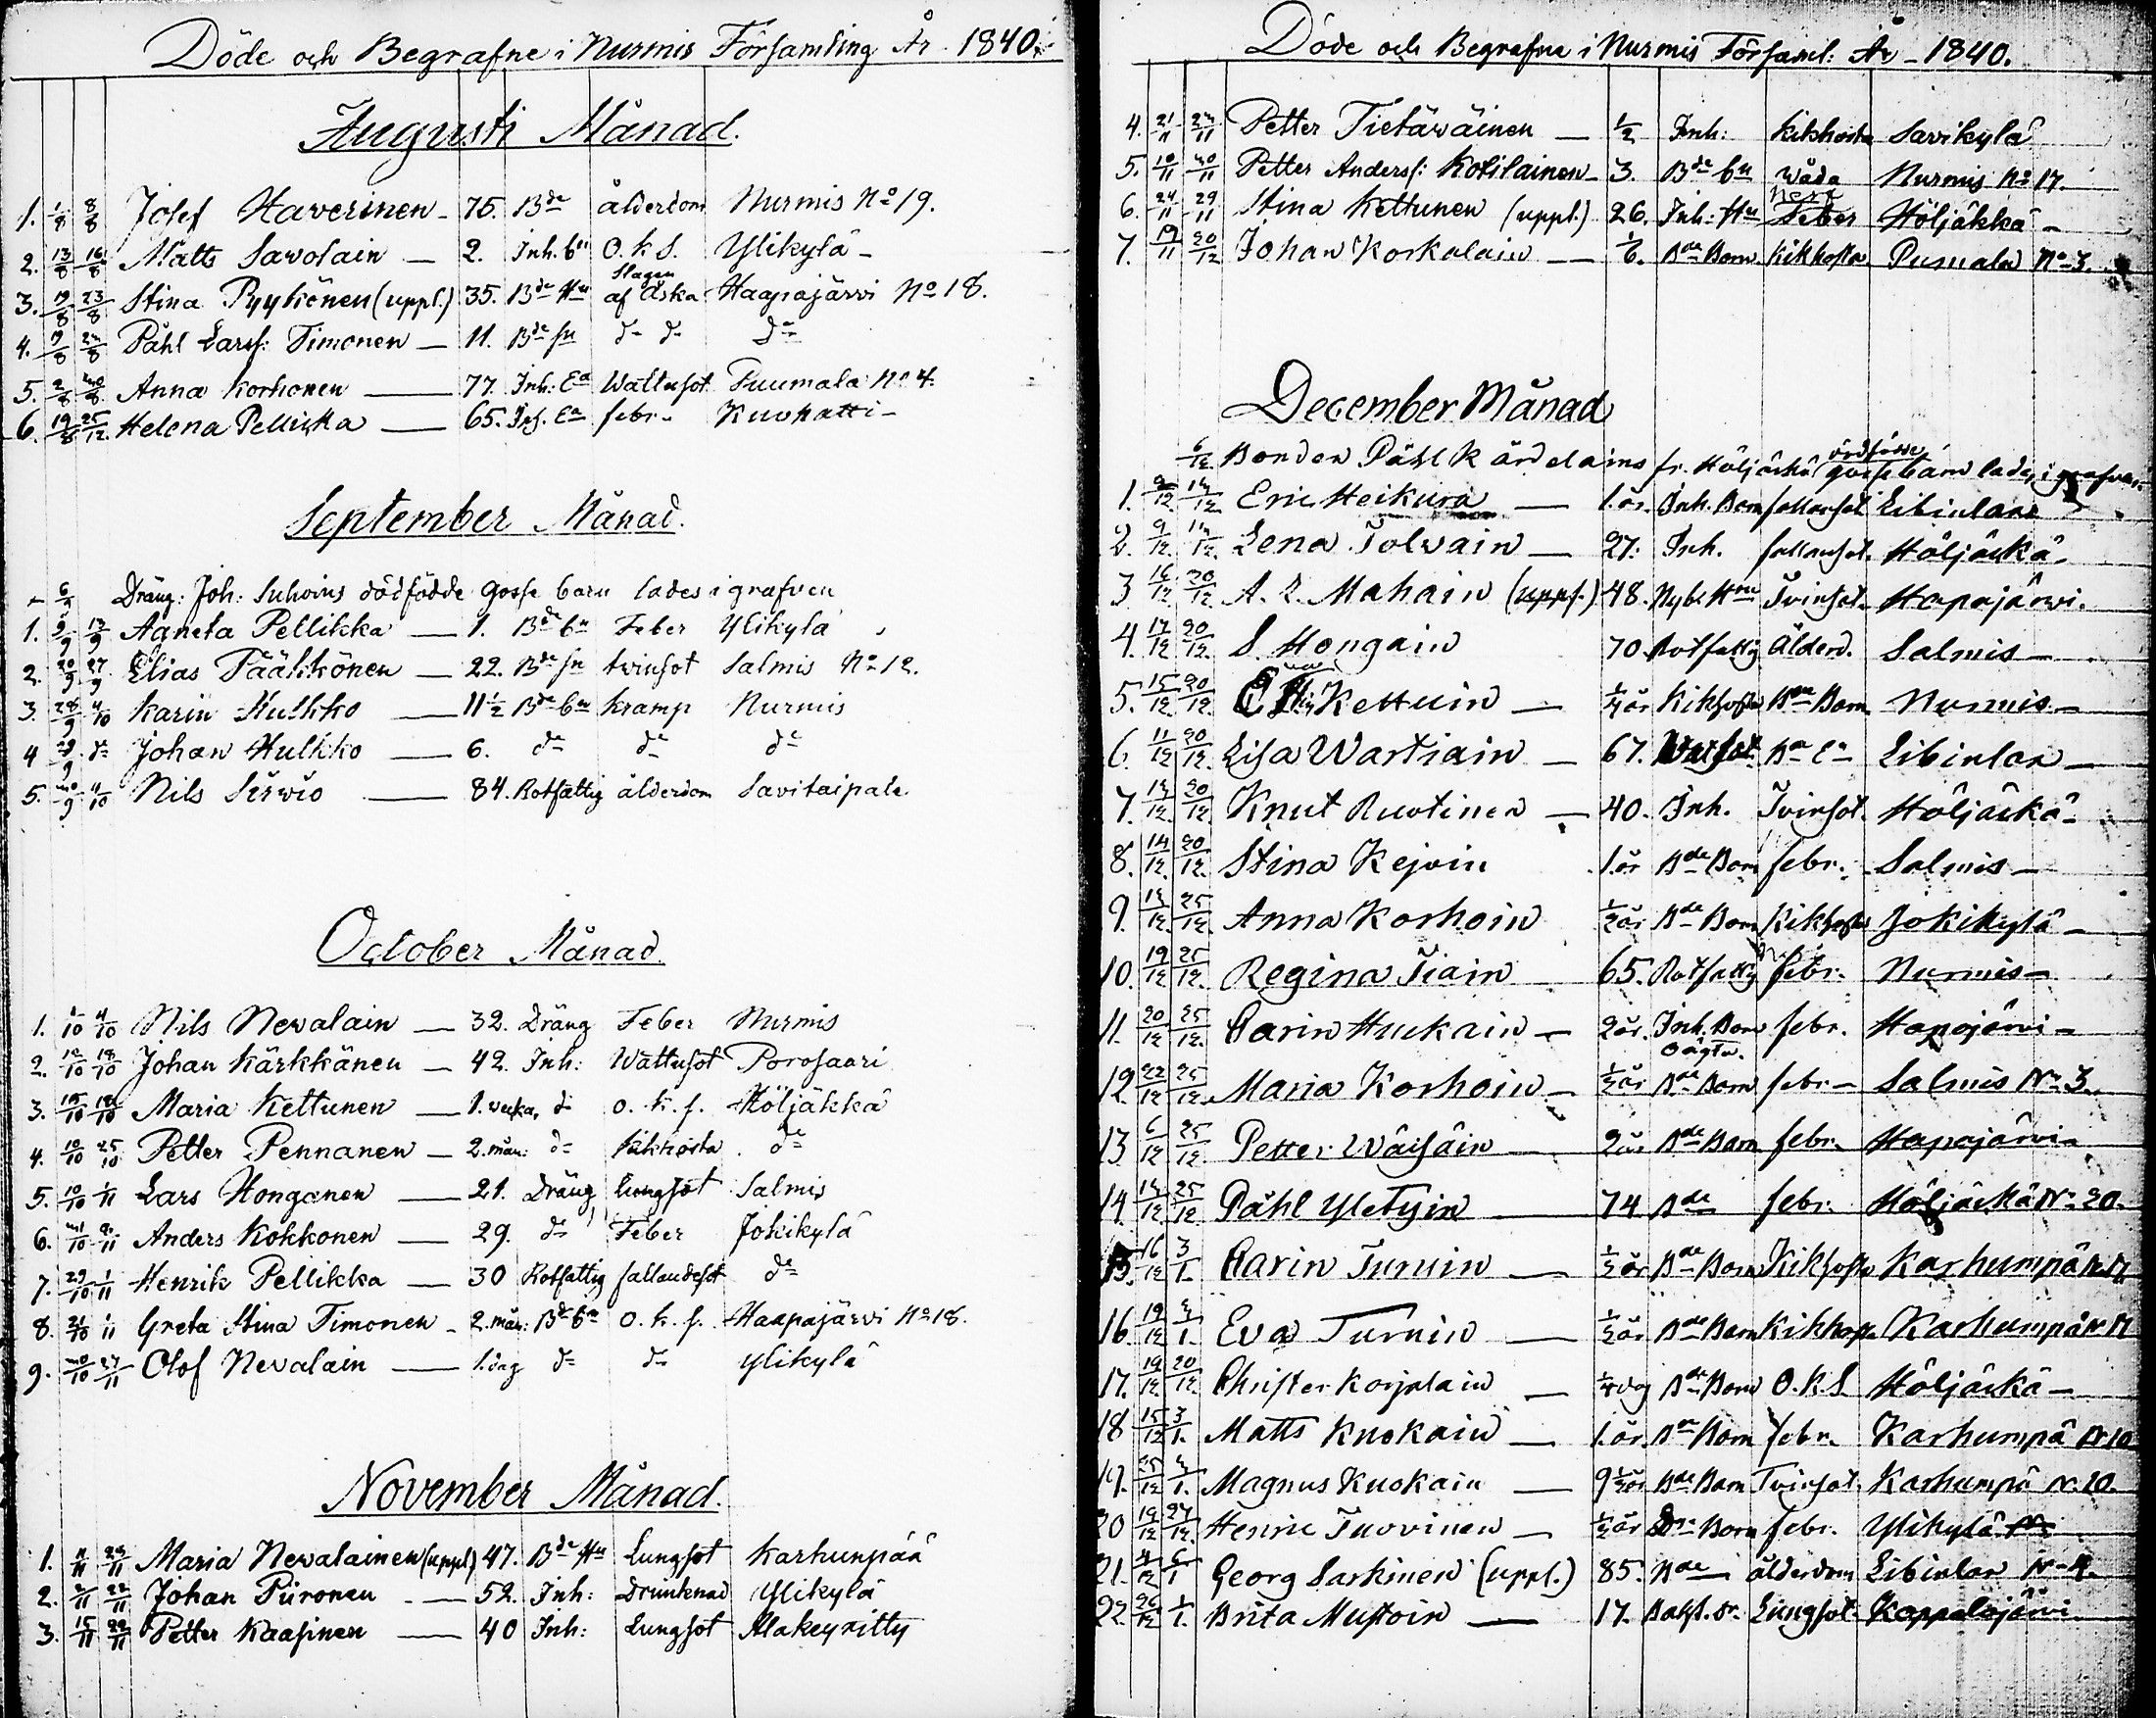 Döde och Begrafne i Nurmis Församling År 1840.
Augusti Månad.
1. 1/8 8/8 Josef Haverinen 75. Bde ålderdom Nurmis No 19.
2. 13/8 16/8 Matts Sawolain 2. Inh. bn O. k. S. Ylikylä
3. 19/8 23/8 Stina Pyykönen (uppl.) 35. Bde Hu Slagen af åska Haapajärvi No 18.
4. 19/8 23/8 Påhl Larss: Timonen 11. Bde sn do do do
5. 2/8 30/8 Anna Korhonen 77. Inh: Ea Wattusot Puumala No 4.
6. 19/8 25/12 Helena Pellikka 65. Inh. Ea febr. Kuohatti
September Månad.
6/9 Dräng: Joh: Suhoins dödfödde gosse barn lades i grafven
1. 9/9 13/9 Agneta Pellikka 1. Bde bn Feber Ylikylä
2. 20/9 27/9 Elias Päähkönen 22. Bde sn twinsot Salmis No 12.
3. 28/9 4/10 Karin Hulkko 11 1/2 Bde bn kramp Nurmis
4 29/9 do Johan Hulkko 6. do do do
5. 30/9 4/10 Nils Sirwiö 84. Rotfattig ålderdom Savitaipale
October Månad.
1. 1/10 4/10 Nils Nevalain 32. Dräng Feber Nurmis
2. 12/10 18/10 Johan Kärkkänen 42. Inh: Wattusot Porosaari
3. 15/10 18/10 Maria Kettunen 1. wecka, do o. k. s. Höljäkkä
4. 10/10 25/10 Petter Pennanen 2. mån: do kikhosta do
5. 10/10 1/11 Lars Honganen 21. Dräng lungsot Salmis
6. Anders Kokkonen 29. do Feber Jokikylä
7. 29/10 1/11 Henrik Pellikka 30 Rotfattig fallandesot do
8. 21/10 1/11 Greta Stina Timonen 2. mån: Bde bn O. k. s. Haapajärvi No 18.
9. 30/10 Olof Nevalain 1. dag do do Ylikylä
November Månad.
1. Maria Nevalainen (uppl) 47. Bde Hu Lungsot Karhunpää
2. 2/11 22/11 Johan Piironen 52. Inh: Drunknad Ylikylä
3. 15/11 22/11 Petter Kaasinen 40 Inh: Lungsot Alakeyritty
Döde och Begrafne i Nurmis Församl: År 1840.
4. 21/11 Petter Tietäwäinen 1/2 Inh: kikhosta Savikylä
5. 10/11 Petter Anderss: Kotilainen 3. Bde bn wåda Nurmis No 17.
6. 24/11 29/11 Stina Kettunen (uppl.) 26. Inh: Hu Nerf Feber Höljäkkä
7. 19/11 20/12 Johan Korkalain 1/6. Bde Barn. Kikhosta. Pumala No 3.
December Månad
6/12 Bonden Påhl Kärdelains fr. Höljäckä dödfödde gosse barn lades i grafven
1. Eric Heikura 1. år. Inh. Barn fallansot Libinlax
2. 9/12 Lena Tolvain 27. Inh. fallansot. Höljäckä
3 16/12 20/12 A. L. Mahain (uppl.) 48. Nyb. Hru Tvinsot. Hapajärvi.
4. 17/12 20/12 S. Hongain 70. Rotfattig Ålderd. Salmis
5. 15/12 20/12 Kettuin 1/4 år Kikhosta Bde Barn Nurmis
6. 11/12 20/12 Lisa Wartiain 67. Ba Ea Libinlax
7. 20/12 Knut Ruotinen 40. Inh. Tvinsot. Höljäckä
8. 14/12 20/12 Stina Kejoin 1. år Bde Barn febr. Salmis
9. 25/12 Anna Korhoin 1/2 år Bde Barn Kikhosta Jokikylä
10. 19/12 25/12 Regina Tiain 65. Rotfattig febr. Nurmis
11. 20/12 25/12 Carin Huckain 2 år. Inh. Barn oägta. febr. Hapajärvi
12 22/12 25/12 Maria Korhoin 1/2 år Bde Barn febr Salmis No 3.
13 6/12 25/12 Petter Wäisäin 2 år Bde Barn febr. Hapajärvi
14. 25/12 Påhl Yletyin 74 Bde febr. Höljäckä No 20.
15. 16/12 3/1. Carin Turuin 1/2 år Bde Barn Kikhosta Karhumpä
16. 19/12 3/1. Eva Turuin 1/2 år Bde Barn Kikhosta Karhumpä
17. 19/12 20/12 Christer Korpelain 1/4 dag Bde Barn O. k. S Höljäckä
18 15/12 3/1. Matts Kuokain 1. år. Bde Barn febr. Karhumpä No 10
19. 25/12 3/1. Magnus Kuokain 9 1/2 år Bde Barn Tvinsot. Karhumpä No 20.
20 19/12 27/12 Henric Tuovinen 1/2 år Barn febr. Ylikylä
21. Georg Sarkinen (uppl.) 85. Bde ålderdom Libinlax No 4.
22. 26/12 1/1. Brita Mustoin 17. Lungsot. Koppelojärvi